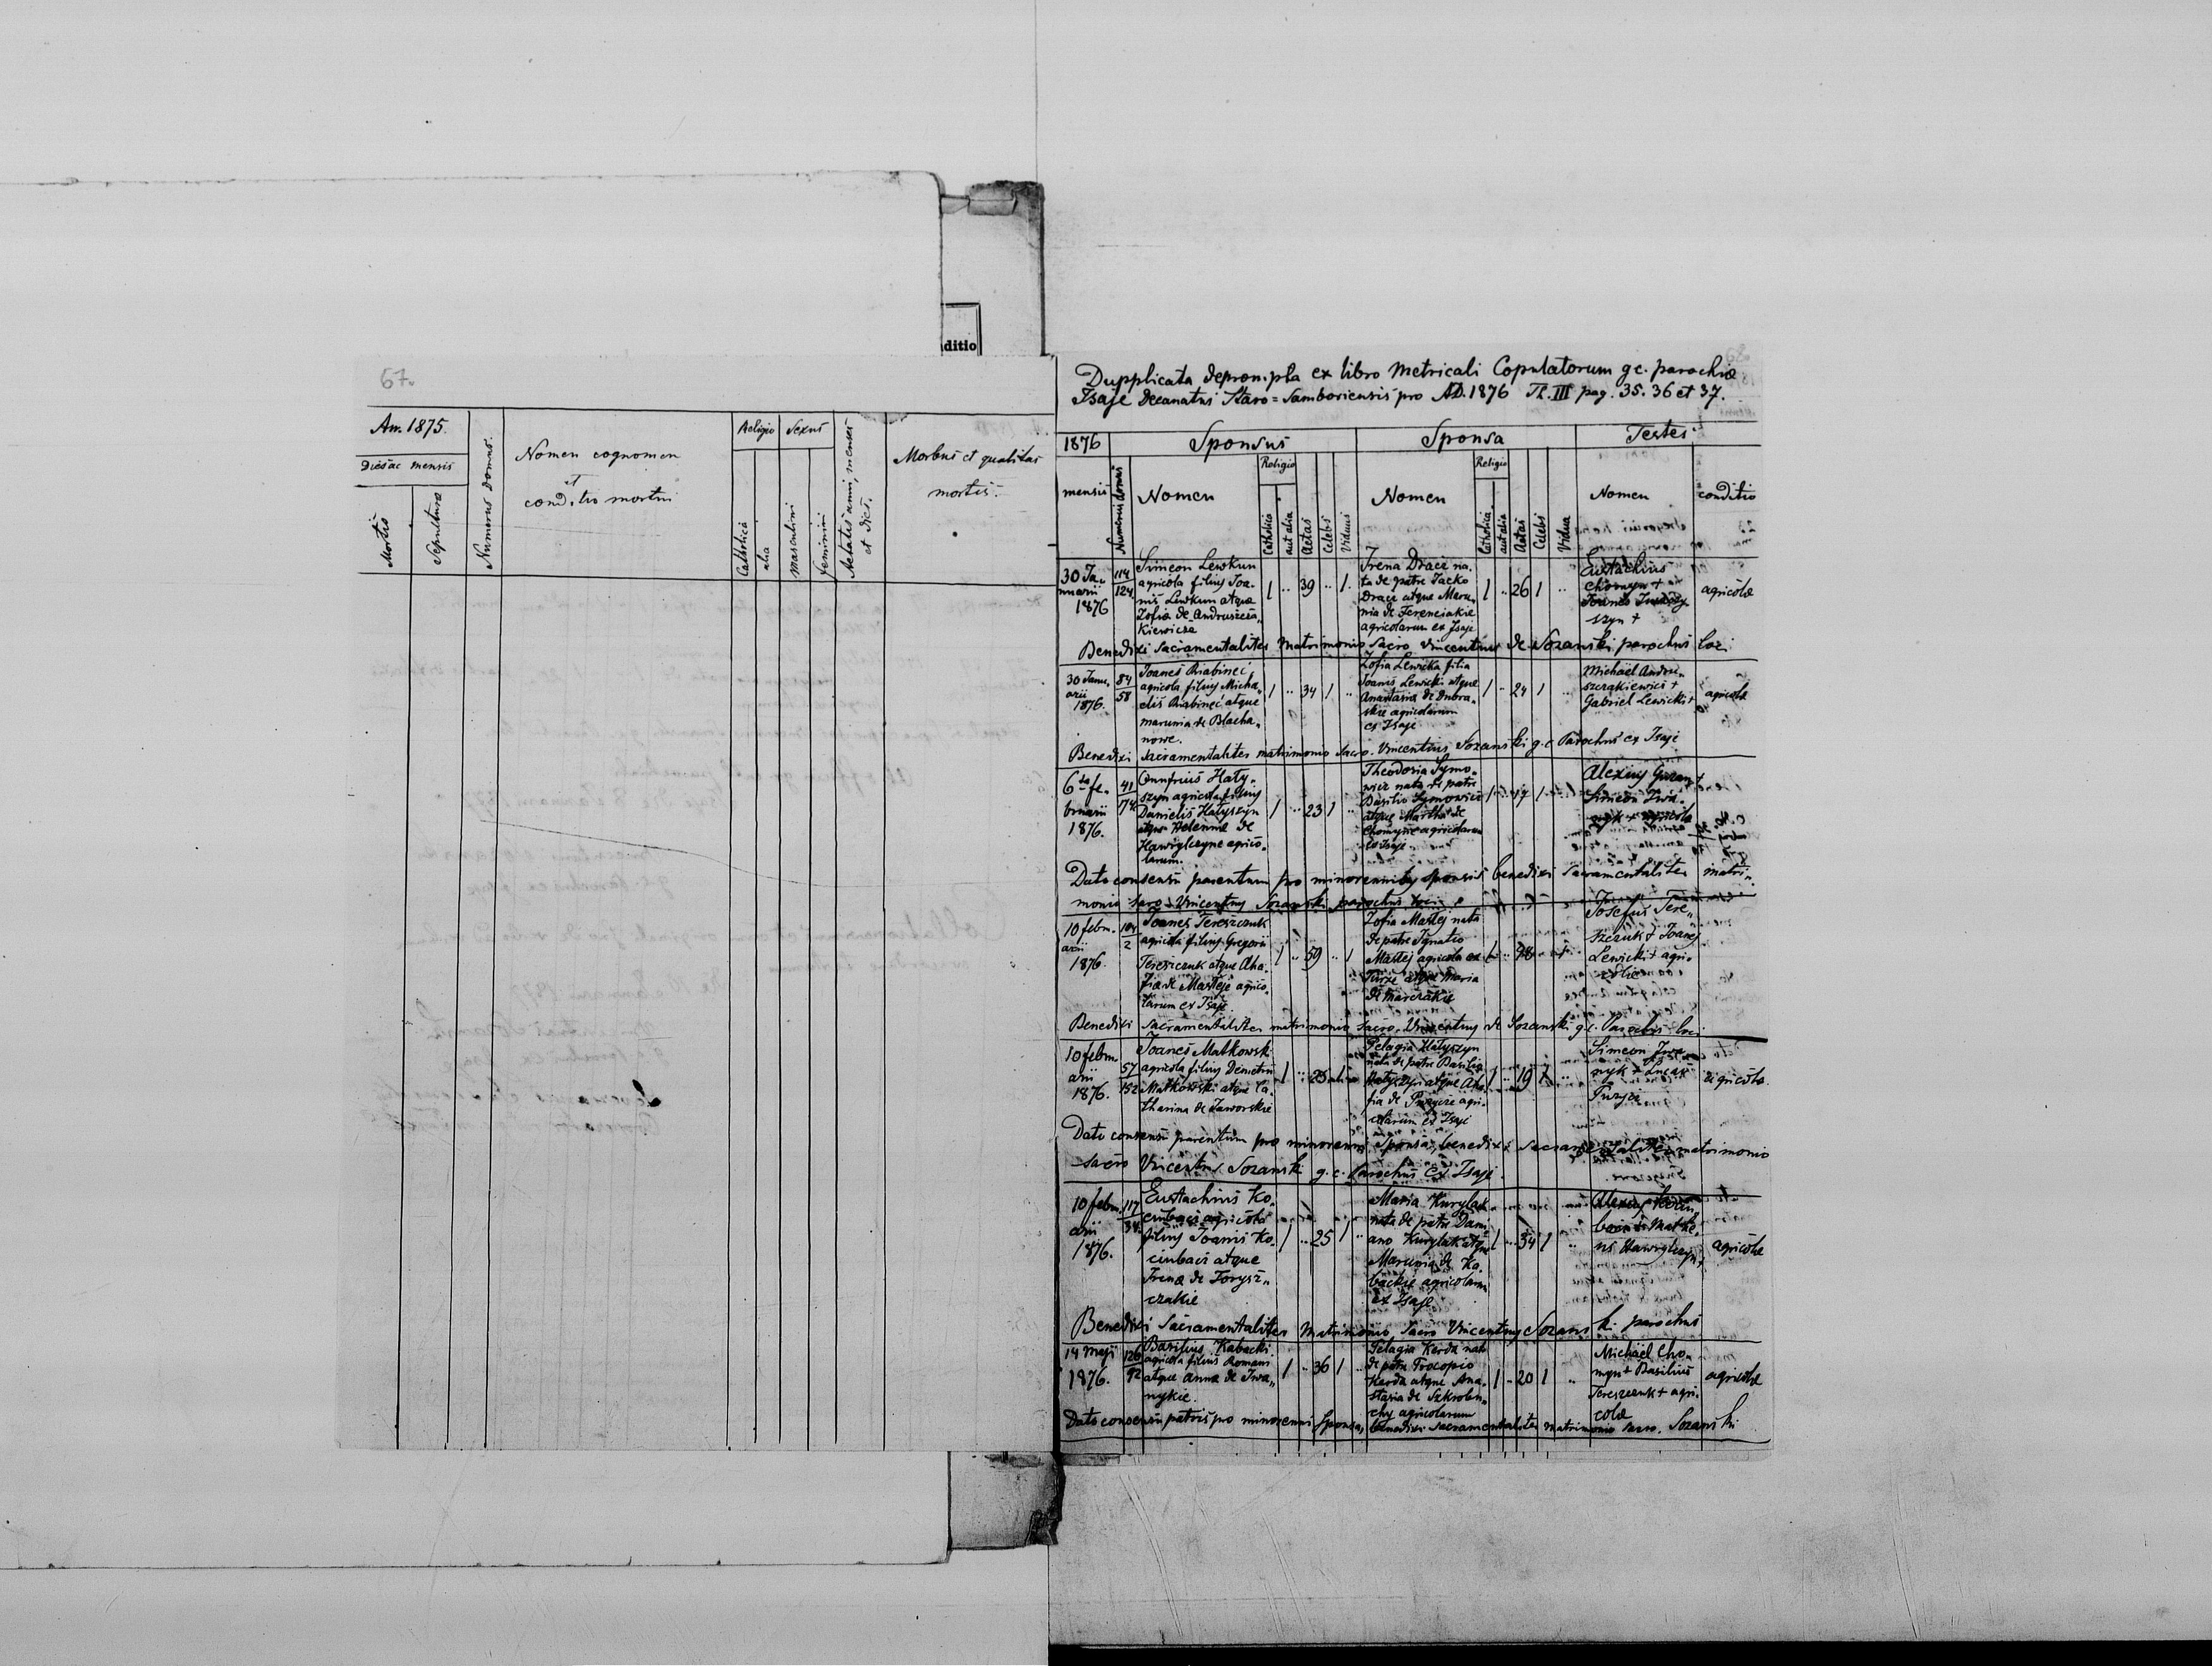 ditio
67.
An. 1875.
Dies ac mensis
Mortis
Sepultura
Numerus domus.
Nomen cognomen
et
conditio mortui
Religio
Catholica
alia
Sexus
masculini
feminini
Aetatis anni, menses
et dies.
Morbus et qualitas
mortis.
Dupplicata deprompta ex libro Metricali Copulatorum g.c. parochiæ
Isaje Decanatus Staro=Samboriensis pro AD. 1876 T. III pag. 35. 36 et 37.
1876
Sponsus
Sponsa
Testes
mensis
Numerus domus
Nomen
Religio
Catholica
aut alia
Aetas
Celebs
Viduus
Nomen
Religio
Catholica
aut alia
Aetas
Celebs
Vidua
Nomen
conditio
30 Ja-
nuarii
1876
114
124
Simeon Lewkun
agricola filius Joa-
nis Lewkun atque
Zofia de Andruszcza-
kiewicze
1 .. 39 .. 1.
Irena Dracz na-
ta de patre Jacko
Dracz atque Maru-
nia de Ferenciakie
agricolarum ex Isaje
1 .. 26 1 ..
Eustachius
Chomyn +
Joanes
szyn +
agricolæ
Benedixi Sacramentaliter Matrimonio Sacro Vincentius de Sozanski parochus loci
30 Janu-
arii
1876.
84
58
Joanes Riabineć
agricola filius Micha-
elis Riabineć atque
marunia de Blacha-
nowe.
1 .. 34 1 ..
Zofia Lewicka filia
Joanis Lewicki atque
Anastasia de Dubra-
skie agricolarum
ex Isaje
1 .. 24 1
Michael Andru-
szczakiewicz +
Gabriel Lewicki +
agricolæ
Benedixi Sacramentaliter matrimonio Sacro. Vincentius Sozanski g.c. Parochus ex Isaje
6ta fe-
bruarii
1876.
41
174
Onufrius Haty-
szyn agricola filius
Danielis Hatyszyn
atque Helenna de
Hawrylczyne agrico-
larum.
1 .. 23 1
Theodosia Symo-
wicz nata de patre
Basilio Symowicz
atque Martha de
Chomyne agricolarum
ex Isaje
1 .. 17 1
Alexius Guran +
Simeon Iwa-
nyk + agricolæ
Dato consensu parentum pro minorennibus sponsis benedixi Sacramentaliter matri-
monio sacro Vincentius Sozanski parochus loci
10 febru-
arii
1876.
104
2
Joanes Tereszczuk
agricola filius Gregorii
Tereszczuk atque Aha-
fia de Masteje agrico-
larum ex Isaje
1 .. 59 .. 1
Zofia Mastej nata
de patre Ignatio
Mastej agricola ex
Turze atque Maria
de Marczakie
Josefus Tere-
szczuk + Joanes
Lewicki + agri-
colæ
Benedixi Sacramentaliter matrimonio sacro. Vincentius de Sozanski g.c. Parochus loci
10 febru-
arii
1876.
57
152
Joanes Matkowski
agricola filius Demetrii
Matkowski atque Ca-
tharina de Jaworskie
Pelagia Hatyszyn
nata de patre Basilio
Hatyszyn atque Aha-
fia de Puzycze agri-
colarum ex Isaje
1 .. 19 1 ..
Simeon Iwa-
nyk + Lucas
Puzycz
agricolæ
Dato consensu parentum pro minorenni Sponsa, benedixi Sacramentaliter matrimonio
sacro Vincentius Sozanski g.c. Parochus ex Isaje.
10 febru-
arii
1876.
117
34.
Eustachius Ko-
ciubacz agricola
filius Joanis Ko-
ciubacz atque
Irena de Torysz-
czakie
1 .. 25 1 ..
Maria Kurylak
nata de patre Dami-
ano Kurylak atque
Marunia de Ka-
backie agricolarum
ex Isaje
1 .. 34 1 ..
Alexius
Hawrylczyn +
agricolæ
Benedixi Sacramentaliter Matrimonio Sacro Vincentius Sozanski parochus
14 Maji
1876.
126
92
Basilius Kabacki
agricola filius Romani
atque Anna de Iwa-
nykie.
1 .. 36 1 ..
Pelagia Kerda nata
de patre Procopio
Kerda atque Ana-
stasia de Szkrobu-
chy agricolarum
1 .. 20 1 ..
Michael Cho-
myn + Basilius
Tereszczuk + agri-
colæ
agricolæ
Dato consensu patris pro minorenni Sponsa, benedixi Sacramentaliter matrimonio sacro. Sozanski